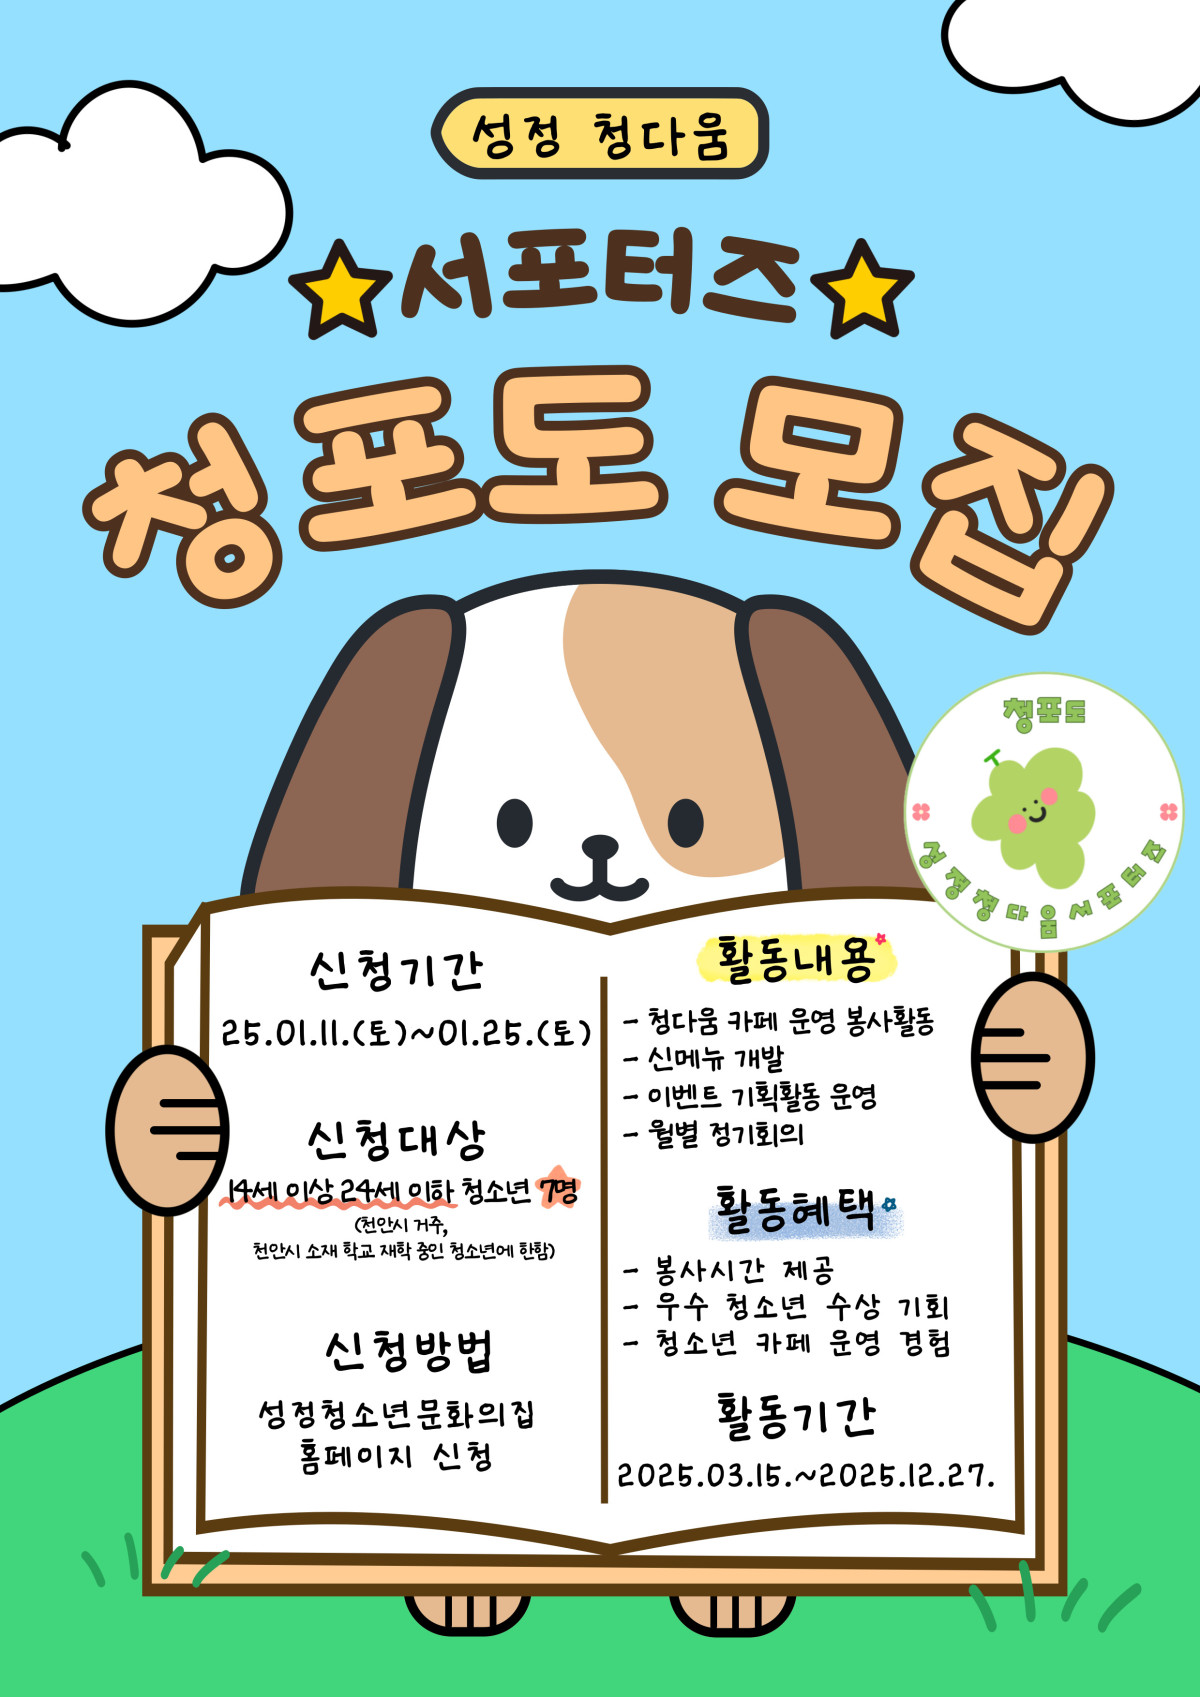 성정 청다움
서포터즈
청포도 모집
청포도
성정청다움서포터즈
신청기간
25.01.11.(토)~01.25.(토)
신청대상
14세 이상 24세 이하 청소년 7명
(천안시 거주,
천안시 소재 학교 재학 중인 청소년에 한함)
신청방법
성정청소년문화의집
홈페이지 신청
활동내용
- 청다움 카페 운영 봉사활동
- 신메뉴 개발
- 이벤트 기획활동 운영
- 월별 정기회의
활동혜택
- 봉사시간 제공
- 우수 청소년 수상 기회
- 청소년 카페 운영 경험
활동기간
2025.03.15.~2025.12.27.